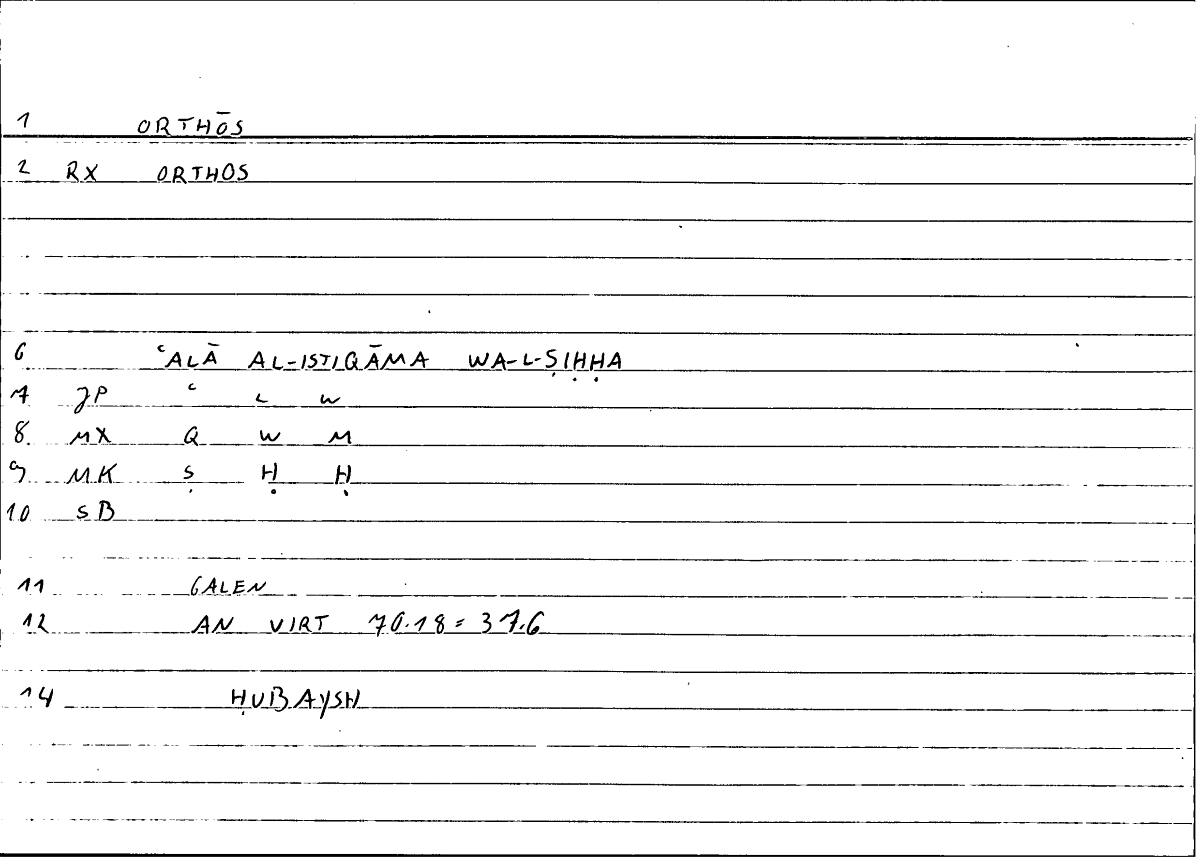 1 ORTHŌS
2 RX ORTHOS
6 ʿALĀ AL-ISTIQĀMA WA-L-ṢIḤḤA
7 JP ʿ L W
8. MX Q W M
9 MK Ṣ Ḥ Ḥ
10 SB
11 GALEN
12 AN VIRT 70.18 = 37.6
14 ḤUBAYSH